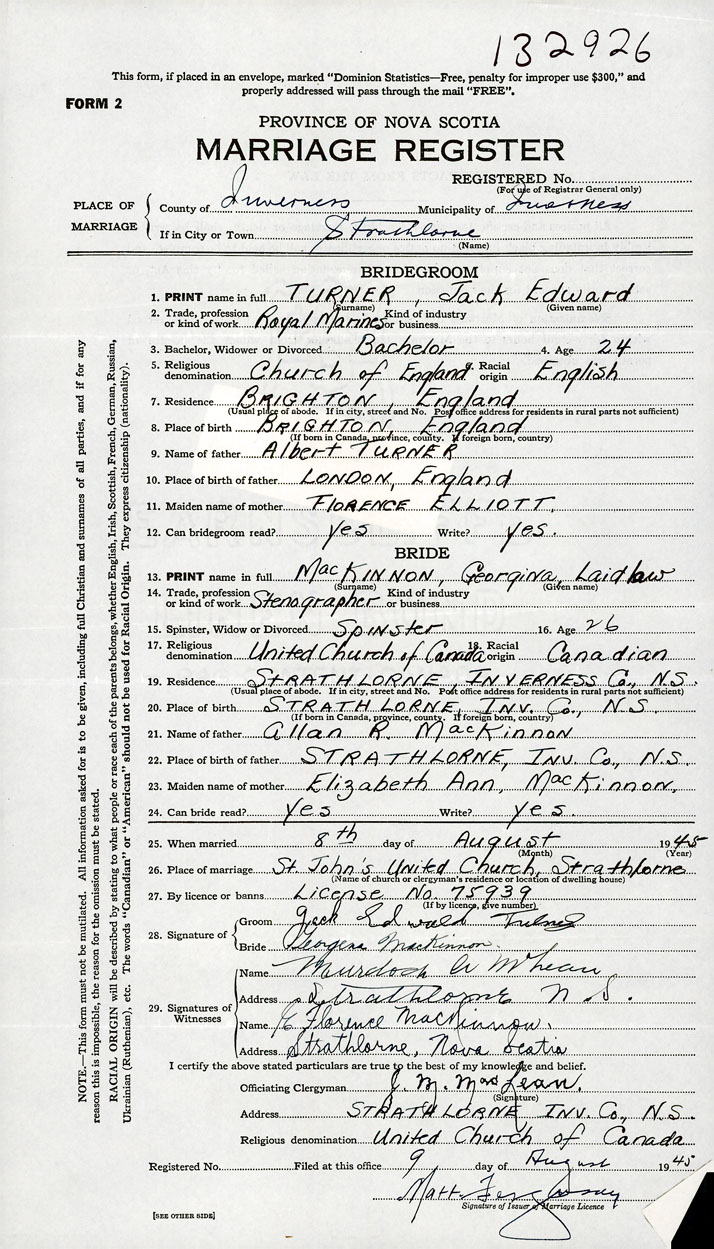 132926
This form, if placed in an envelope, marked "Dominion Statistics—Free, penalty for improper use $300," and
properly addressed will pass through the mail "FREE".
FORM 2
PROVINCE OF NOVA SCOTIA
MARRIAGE REGISTER
REGISTERED No.
(For use of Registrar General only)
PLACE OF MARRIAGE
County of Inverness Municipality of Inverness
If in City or Town Strathlorne
(Name)
BRIDEGROOM
1. PRINT name in full TURNER, Jack Edward
(Surname) (Given name)
2. Trade, profession or kind of work Royal Marines Kind of industry or business
3. Bachelor, Widower or Divorced Bachelor 4. Age 24
5. Religious denomination Church of England 6. Racial origin English
7. Residence BRIGHTON, England
(Usual place of abode. If in city, street and No. Post office address for residents in rural parts not sufficient)
8. Place of birth BRIGHTON, England
(If born in Canada, province, county. If foreign born, country)
9. Name of father Albert TURNER
10. Place of birth of father LONDON, England
11. Maiden name of mother FLORENCE ELLIOTT.
12. Can bridegroom read? yes Write? yes.
BRIDE
13. PRINT name in full MacKINNON, Georgina, Laidlaw
(Surname) (Given name)
14. Trade, profession or kind of work Stenographer Kind of industry or business
15. Spinster, Widow or Divorced Spinster 16. Age 26
17. Religious denomination United Church of Canada 18. Racial origin Canadian
19. Residence STRATHLORNE, INVERNESS Co., N.S.
(Usual place of abode. If in city, street and No. Post office address for residents in rural parts not sufficient)
20. Place of birth STRATHLORNE, INV. Co., N.S.
(If born in Canada, province, county. If foreign born, country)
21. Name of father Allan R. MacKinnon
22. Place of birth of father STRATHLORNE, INV. Co., N.S.
23. Maiden name of mother Elizabeth Ann, MacKinnon,
24. Can bride read? yes Write? yes.
25. When married 8th day of August 1945
(Month) (Year)
26. Place of marriage St John's United Church, Strathlorne
(Name of church or clergyman's residence or location of dwelling house)
27. By licence or banns License No. 75939
(If by licence, give number)
28. Signature of
Groom Jack Edward Turner
Bride Georgina MacKinnon.
29. Signatures of Witnesses
Name Murdoch
Address Strathlorne N S.
Name Florence MacKinnon.
Address Strathlorne, Nova Scotia
I certify the above stated particulars are true to the best of my knowledge and belief.
Officiating Clergyman J. M. MacLean.
(Signature)
Address STRATHLORNE INV. Co., N.S.
Religious denomination United Church of Canada
Registered No. Filed at this office 9 day of August 1945
Matt Ferguson
Signature of Issuer of Marriage Licence
[SEE OTHER SIDE]
NOTE.—This form must not be mutilated. All information asked for is to be given, including full Christian and surnames of all parties, and if for any
reason this is impossible, the reason for the omission must be stated.
RACIAL ORIGIN will be described by stating to what people or race each of the parents belongs, whether English, Irish, Scottish, French, German, Russian,
Ukrainian (Ruthenian), etc. The words "Canadian" or "American" should not be used for Racial Origin. They express citizenship (nationality).